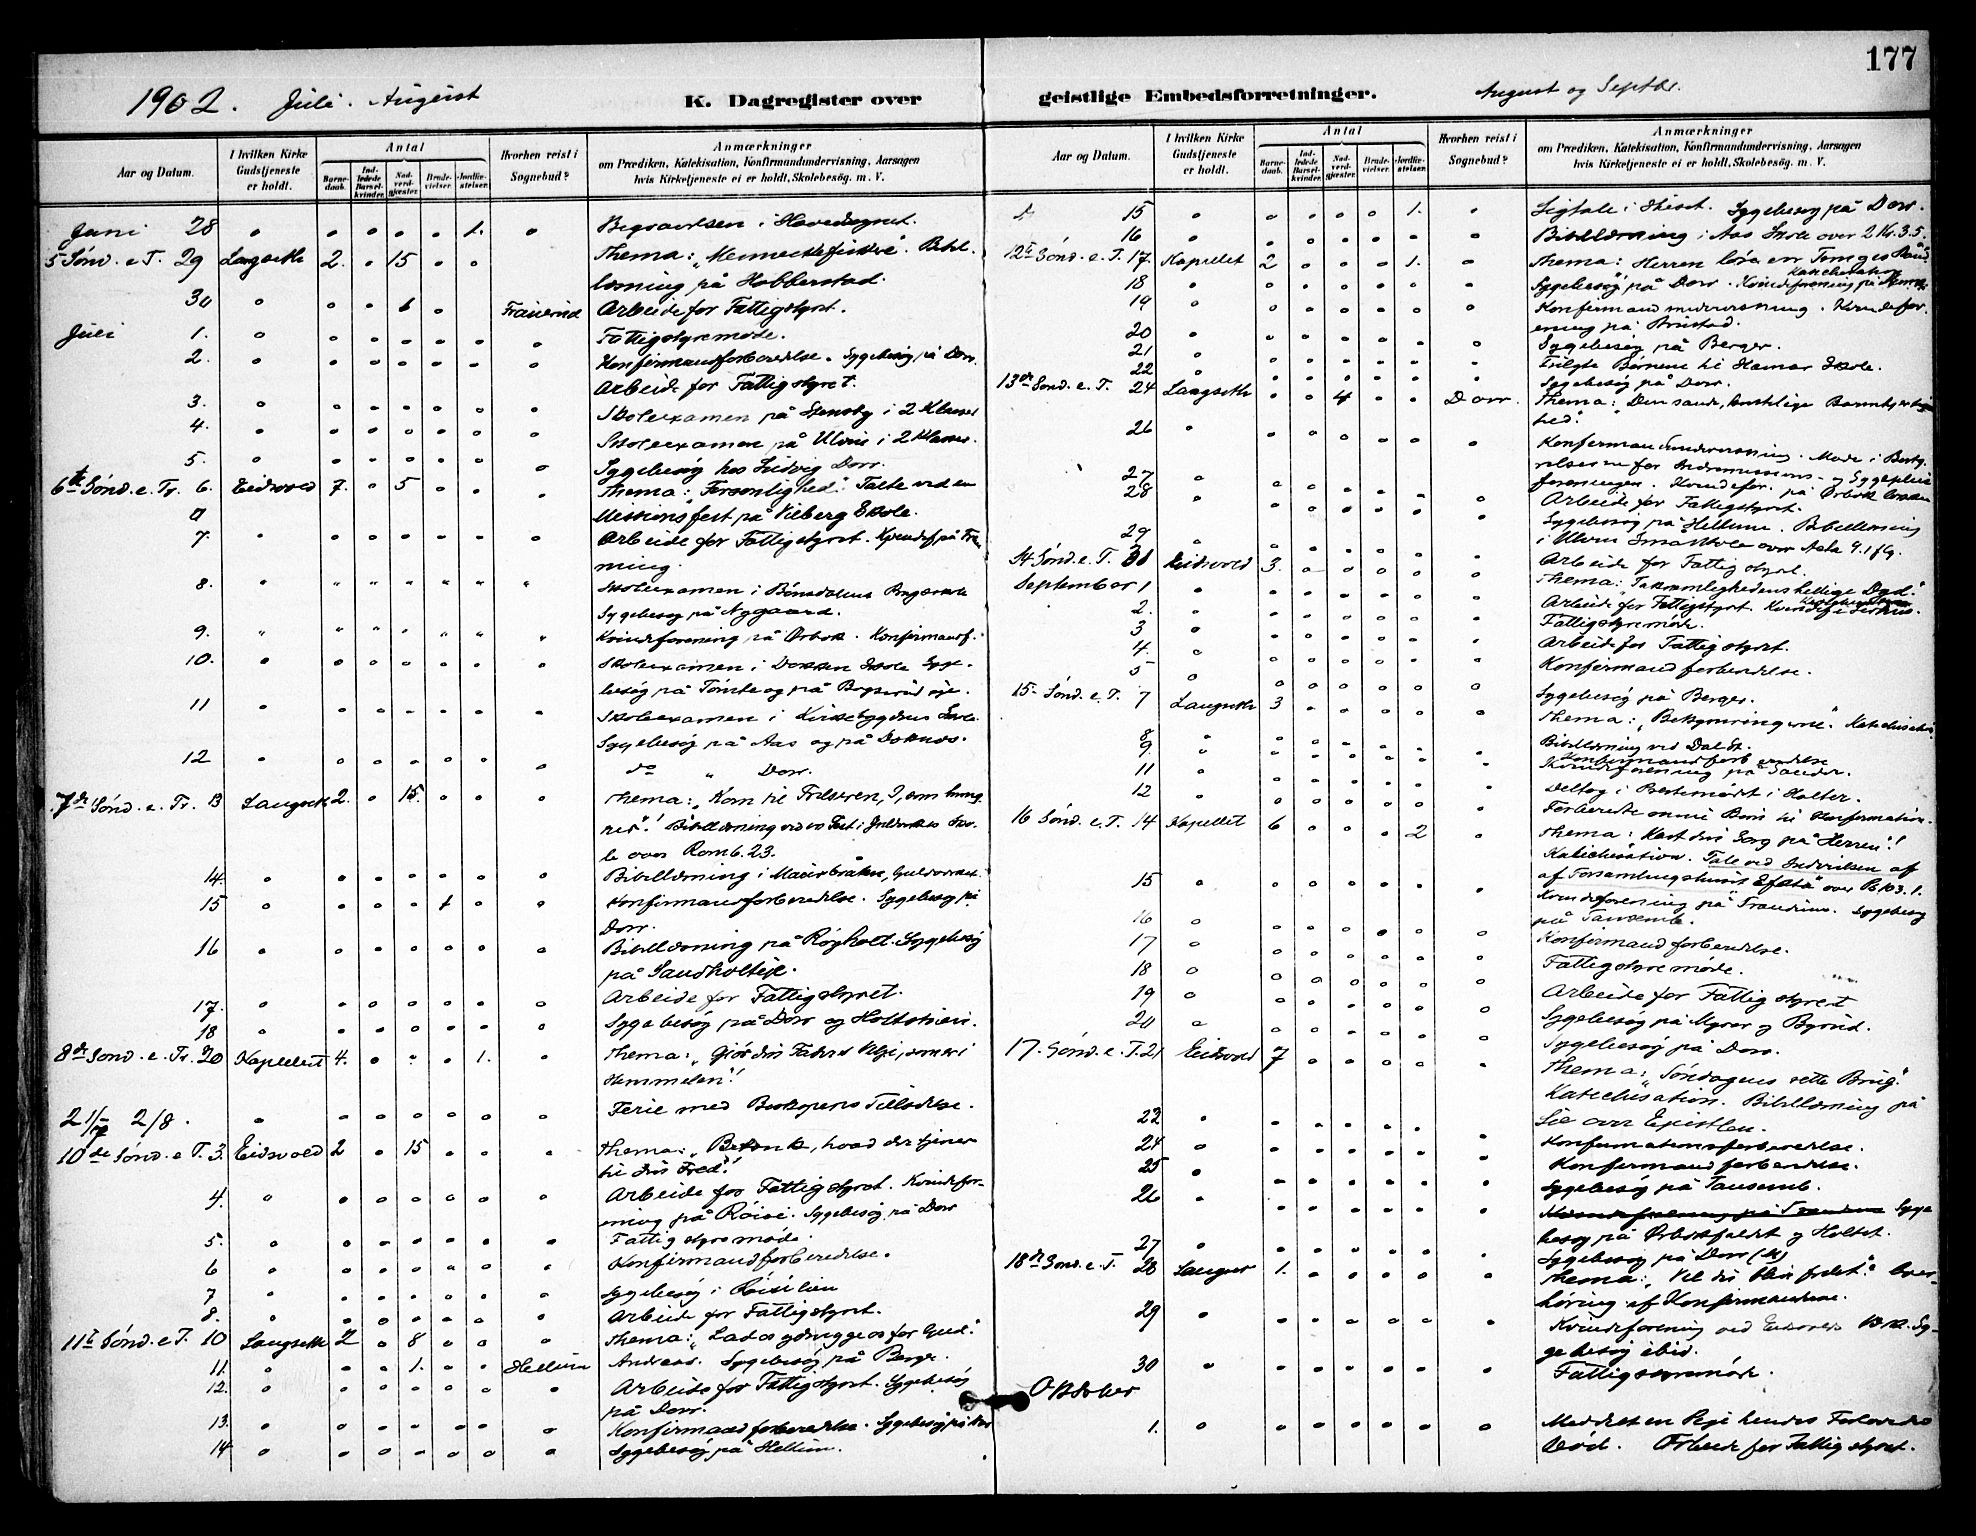 177
1902. Juli. August
K. Dagregister over
geistlige Embedsforretninger.
August og Septbr.
Aar og Datum.
I hvilken Kirke Gudstjeneste er holdt.
Antal
Barnedaab.
Indledede Barselkvinder.
Nadverdgjæster.
Brudevielser.
Jordfæstelser.
Hvorhen reist i Sognebud?
Anmærkninger
om Prædiken, Katekisation, Konfirmandundervisning, Aarsagen
hvis Kirketjeneste ei er holdt, Skolebesøg. m. V.
Juni 28 " " " " " 1. " Begravelsen i Hovedsognet.
5 Sønd. e. T. 29 Langseth 2. " 15 " " Thema: „Menneskefiskere“. Bibel-
læsning på Habberstad.
30 " " " 6 " Arbeide for Fattigstyret.
Juli 1. " " " " " " " Fattigstyremøde.
2. " " " " " " " Konfirmandforberedelse. Sygebesøg på Dorr.
Arbeide for Fattigstyret.
3. " " " " " " " Skoleexamen på Stensby i 2 Klasser
4. " " " " " " " Skoleexamen på Ulvin i 2 Klasser.
5. " " " " " " " Sygebesøg hos Ludvig Dorr.
6te Sønd. e. Tr. 6. Eidsvold 7. " 5 " " " Thema: „Forsonlighed“. Talte ved en
Missionsfest på Vilberg Skole.
7. " " " " " " " Arbeide for Fattigstyret. Kvindef. på
ning.
8. " " " " " " " Skoleexamen i Bönsdalens
Sygebesøg på Nygaard.
9. " " " " " " " Kvindeforening på Ørbæk. Konfirmandf.
10. " " " " " " " Skoleexamen i Dokken Skole Syge-
besøg på Tömte og på Bogserud eje.
11 " " " " " " " Skoleexamen i Kirkebygdens Skole
Sygebesøg på Aas og på
12 " " " " " " " do " Dorr.
7de Sønd. e. Tr. 13 Langseth 2. " 15. " " " Thema: „Kom til Frelseren, I, som hung-
res“! Bibellæsning ved en Fest i Skо-
le over Rom 6. 23.
14. " " " " " " " Bibellæsning i Guldverket.
15 " " " " 1 " " Konfirmandforberedelse. Sygebesøg på
Dorr.
16 " " " " " " " Bibellæsning på Røyholt. Sygebesøg
på Sandholteje.
17. " " " " " " " Arbeide for Fattigstyret.
18 " " " " " " " Sygebesøg på Dorr og
8de Sønd. e. Tr. 20 Kapellet 4. " " " 1. " Thema: „Giör din Faders Vilje, som er i
Himmelen“!
21/7 2/8. " " " " " " " Ferie med Biskopens Tilladelse.
10de Sønd. e T. 3. Eidsvold 2 " 15 " " " Thema: „Betænk, hvad der tjener
til din Fred“!
4. " " " " " " " Arbeide for Fattigstyret. Kvindefor-
ening på Röise. Sygebesøg på Dorr
5. " " " " " " " Fattigstyremøde.
6 " " " " " " " Konfirmandforberedelse.
7 " " " " " " " Sygebesøg i Röisilien
8. " " " " " " " Arbeide for Fattigstyret.
11te Sønd. e T. 10 Langseth 2 " 8 " " " Thema: „Lad os ydmyge os for Gud“.
11. " " " 1. " " Hellum Andreas. Sygebesøg på Berge.
12. " " " " " " " Arbeide for Fattigstyret. Sygebesøg
på Dorr.
13. " " " " " " " Konfirmandforberedelse. Sygebesøg på Dorr
14 " " " " " " " Sygebesøg på Hellum.
Aar og Datum.
I hvilken Kirke Gudstjeneste er holdt.
Antal
Barnedaab.
Indledede Barselkvinder.
Nadverdgjæster.
Brudevielser.
Jordfæstelser.
Hvorhen reist i Sognebud?
Anmærkninger
om Prædiken, Katekisation, Konfirmandundervisning, Aarsagen
hvis Kirketjeneste ei er holdt, Skolebesøg. m. V.
15 " " " " " 1. " Ligtale i Sygebesøg på Dorr.
16 " " " " " " " Bibellæsning i Aas Skole over 2 Kr. 3. 5.
12te Sønd. e. T. 17. Kapellet 2 " " " 1. " Thema: Herren løser en Tunges Bånd
Katechisation
18 " " " " " " " Sygebesøg på Dorr. Kvindeforening på
19 " " " " " " " Konfirmandundervisning. Kvindefor-
ening på Brustad.
20 " " " " " " " Sygebesøg på Berger.
21 " " " " " " " Fulgte Börnene til Hamar Skole.
22 " " " " " " " Sygebesøg på Dorr.
13de Sønd. e. T. 24 Langseth " " 4 " " Dorr. Thema: „Den sande, kristelige Barmhjertig-
hed“.
26 " " " " " " " Konfirmandundervisning. Møde i Besty-
relserne for Indremissions- og Sygepleie
foreningen. Kvindefor. på Ørbæk
27 " " " " " " " Arbeide for Fattigstyret.
28 " " " " " " " Sygebesøg på Hellum. Bibellæsning
i Ulvin Småskole over Acta 9. 1 flg.
29 " " " " " " " Arbeide for Fattigstyret.
14 Sønd. e. T. 31 Eidsvold 3. " " " " " Thema: „Taknemlighedens hellige Dyd“.
September 1 " " " " " " " Arbeide for Fattigstyret. Kvindef. i
2. " " " " " " " Fattigstyremøde.
3 " " " " " " " Arbeide for Fattigstyret.
4. " " " " " " " Konfirmandforberedelse.
5 " " " " " " " Sygebesøg på Berger.
15. Sønd. e. T. 7 Langseth 3 " " " " " Thema: „Bekymringerne“. Katechisation
8 " " " " " " " Bibellæsning ved Dal St.
9. " " " " " " " Konfirmandforberedelse
Kvindeforening på Sander.
11 " " " " " " " Deltog i Præstemødet i Holter.
12 " " " " " " " Forberedte mine Börn til Konfirmation.
16 Sønd. e. T. 14 Kapellet 6 " " " 2 " Thema: Kast din Sorg på Herren“!
Katechisation. Tale ved Indvielsen af
af Forsamlingshuset „Efata“ over Ps. 103. 1.
15 " " " " " " " Kvindeforening på Sygebesøg
på Tansemb.
16 " " " " " " " Konfirmandforberedelse.
17 " " " " " " " Fattigstyremøde.
18 " " " " " " " Arbeide for Fattigstyret
19 " " " " " " " Sygebesøg på Myrer og Byrud.
20 " " " " " " " Sygebesøg på Dorr.
17. Sønd. e. T. 21 Eidsvold 7 " " " " " Thema: „Söndagens rette Brug“.
Katechisation. Bibellæsning på
Lie over Epistlen.
22 " " " " " " " Konfirmationsforberedelse.
24 " " " " " " " Konfirmandforberedelse.
25 " " " " " " " Sygebesøg på Tansemb.
26 " " " " " " " Kvindeforening på Syge
besøg på og Holtet.
27 " " " " " " " Sygebesøg på Dorr
18de Sønd. e. T. 28 Langset 1. " " " " " Thema: „Vil du blive frelst“. Over-
høring af Konfirmanderne.
29 " " " " " " " Kvindeforening ved Eidsvold Sy-
gebesøg ibid.
30 " " " " " " " Fattigstyremøde.
Oktober
1. " " " " " " " Meddelt en Pige hendes Forlovedes
Död. Arbeide for Fattigstyret.